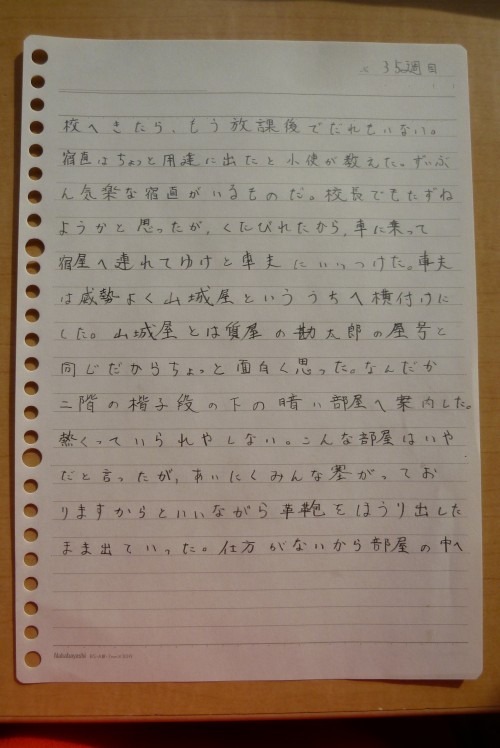 35週目
校へきたら、もう放課後でだれもいない。
宿直はちょっと用達に出たと小使が教えた。ずいぶ
ん気楽な宿直がいるものだ。校長でもたずね
ようかと思ったが、くたびれたから、車に乗って
宿屋へ連れてゆけと車夫にいいつけた。車夫
は威勢よく山城屋といううちへ横付けに
した。山城屋とは質屋の勘太郎の屋号と
同じだからちょっと面白く思った。なんだか
二階の楷子段の下の暗い部屋へ案内した。
熱くっていられやしない。こんな部屋はいや
だと言ったが、あいにくみんな塞がってお
りますからといいながら革鞄をほうり出した
まま出ていった。仕方がないから部屋の中へ
Nakabayashi